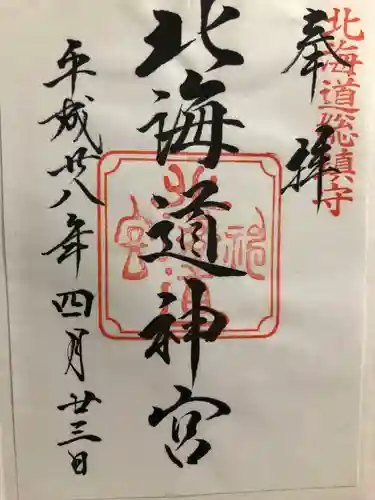 北海道総鎮守
奉拝
北海道神宮
平成廿八年四月廿三日